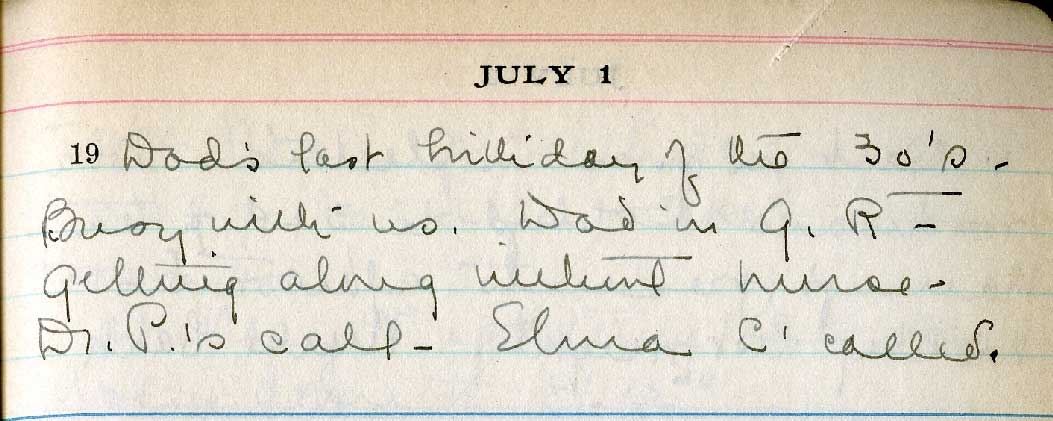 JULY 1
19 Dad's last birthday of the 30's -
Busy with us. Dad in G. R -
Getting along without nurse -
Dr. P.'s call - Elma C' called.